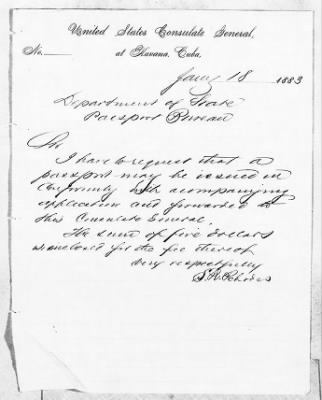 United States Consulate General,
No.
at Havana, Cuba.
Jany 18 1883
Department of State
Passport Bureau
Sir
I have to request that a
passport may be issued in
Conformity with accompanying
application and forwarded to
this Consulate General.
The sum of five dollars
is enclosed for the fee thereof
Very respectfully